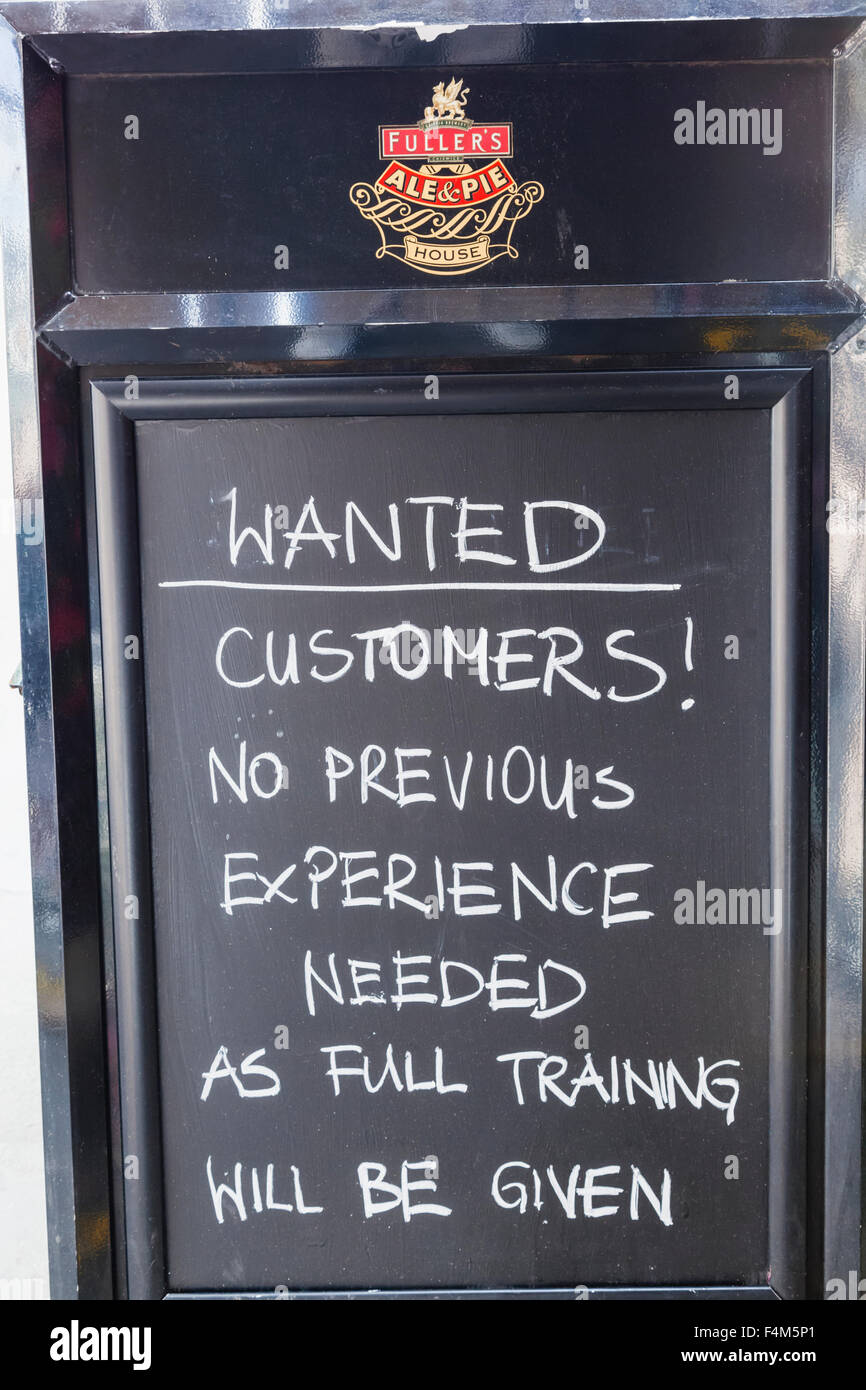 FULLER'S
CHISWICK
ALE & PIE
HOUSE
WANTED
CUSTOMERS!
NO PREVIOUS
EXPERIENCE
NEEDED
AS FULL TRAINING
WILL BE GIVEN
alamy stock photo
F4M5P1
www.alamy.com